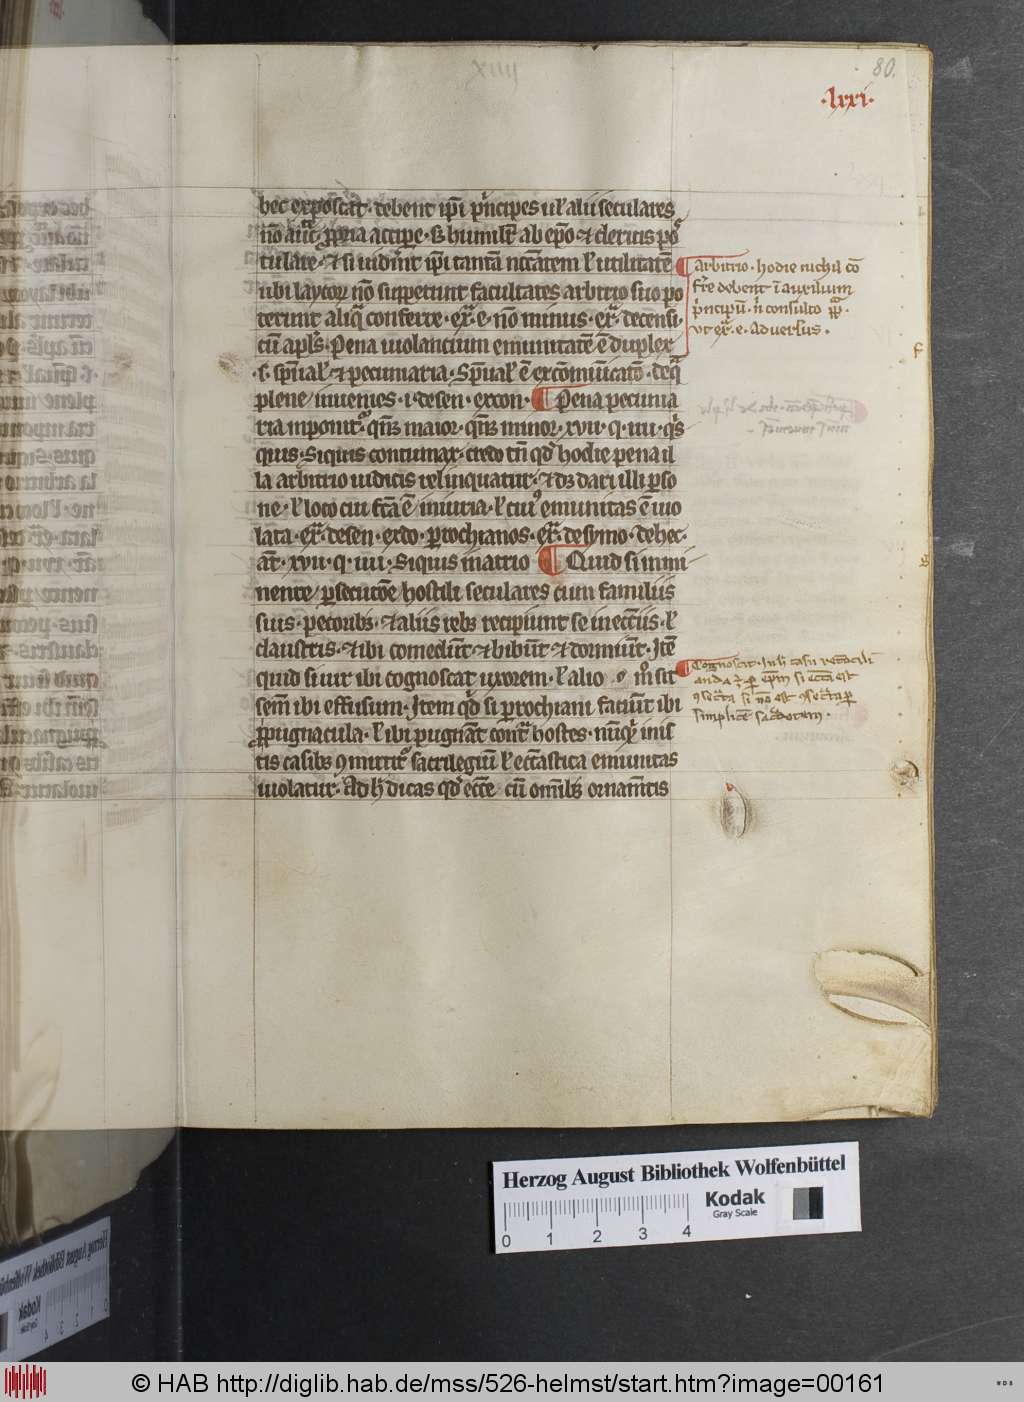 80.
·lxxi·
hec exposcāt· debent ip̄i p̄ncipes ul' alii seculares
nō aut̄ ꝓp̄ria accipe· sꝫ humilit̄ ab ep̄o ⁊ clericis pos
tulare· ⁊ si uid̄int ip̄i tantā nc̄c̄atem l' utilitatē
ubi laycoꝝ nō suppetunt facultates arbitrio suo po
terunt aliq̄ conferre· ex̄· e· nō minus· ex̄· de censi·
cū ap̄l's· Pena uiolancium emunitatē ē duplex
s· sp̄ual' ⁊ pecuniaria· Sp̄ual' ē excōmūicatō· de q̄
plene inuenies· i· de sen· excon· ¶ Pena pecunia
ria inponit᷑ qn̄qꝫ maior· qn̄qꝫ minor· xvii· q· iiii· q's
quis· Siquis contumax· credo tn̄ qd' hodie pena il
la arbitrio iudicis relinquatur· ⁊ dꝫ dari illi ꝑso
ne· l' loco cui fc̄a ē iniuria· l' cui᷒ emunitas ē uio
lata· ex̄· de sen· excō· parochianos· ex̄· de symo· de hec·
ār· xvii· q· iiii· Siquis in atrio ¶ Quid si immi
nente ꝑsecucōe hostili seculares cum familiis
suis· pecoribꝫ· ⁊ aliis rebꝫ recipiunt se in ecc̄iis· l'
claustris· ⁊ ibi comedūt ⁊ bibūt ⁊ dormiūt· Itē
quid si uir ibi cognoscat uxorem· l' alio mō sit
sem̄ ibi effusum· Item qd' si parochiani faciūt ibi
ꝓpugnacula· l' ibi pugnāt cont̄ hostes· nūqd' in is
tis casibꝫ ꝯmittit᷑ sacrilegiū l' ecc̄astica emunitas
uiolatur· Ad h' dicas qd' ecc̄e cū om̄ibꝫ ornam̄tis
¶ arbitrio· hodie nichil cō
fr̄e debent ī auxilium
p̄ncipū· n̄ consulto pp̄·
vt ex̄· e· Aduersus·
¶ Cognoscat· In h' casu recōcili
anda ē ꝑ ep̄m si ecc̄a est
ꝯsecrata si nō est ꝯsecrata ꝑ
simplicē sac̄dotem·
Herzog August Bibliothek Wolfenbüttel
Kodak
Gray Scale
0 1 2 3 4
© HAB http://diglib.hab.de/mss/526-helmst/start.htm?image=00161